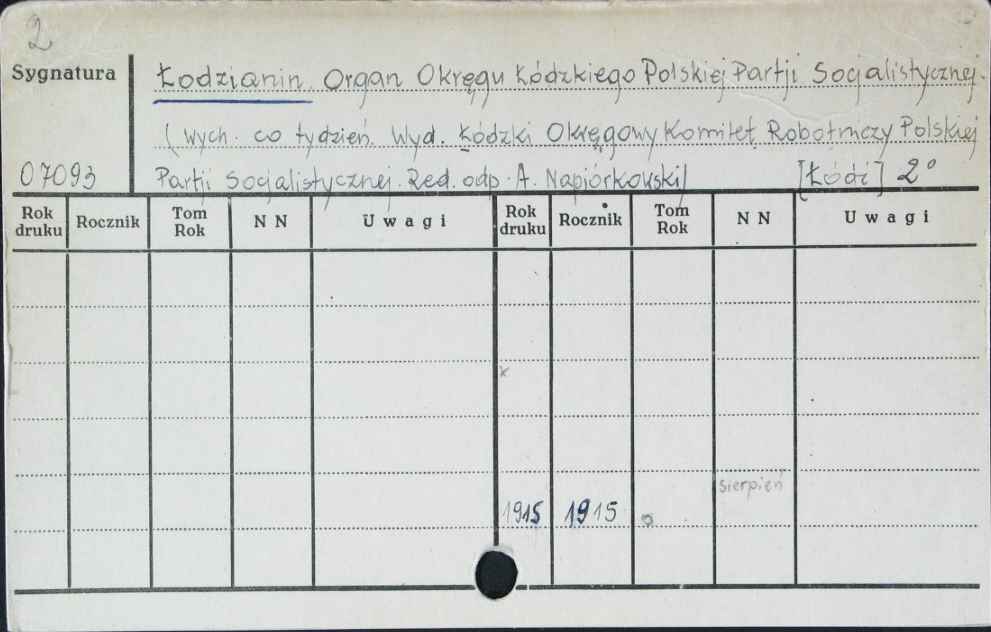 2
Sygnatura
Łodzianin. Organ Okręgu Łódzkiego Polskiej Partji Socjalistycznej.
(Wych. co tydzień. Wyd. Łódzki Okręgowy Komitet Robotniczy Polskiej
07093 Partji Socjalistycznej. Red. odp. A. Napiórkowski) [Łódź] 2°
Rok druku Rocznik Tom Rok N N Uwagi Rok druku Rocznik Tom Rok N N Uwagi
x
sierpień
1915 1915